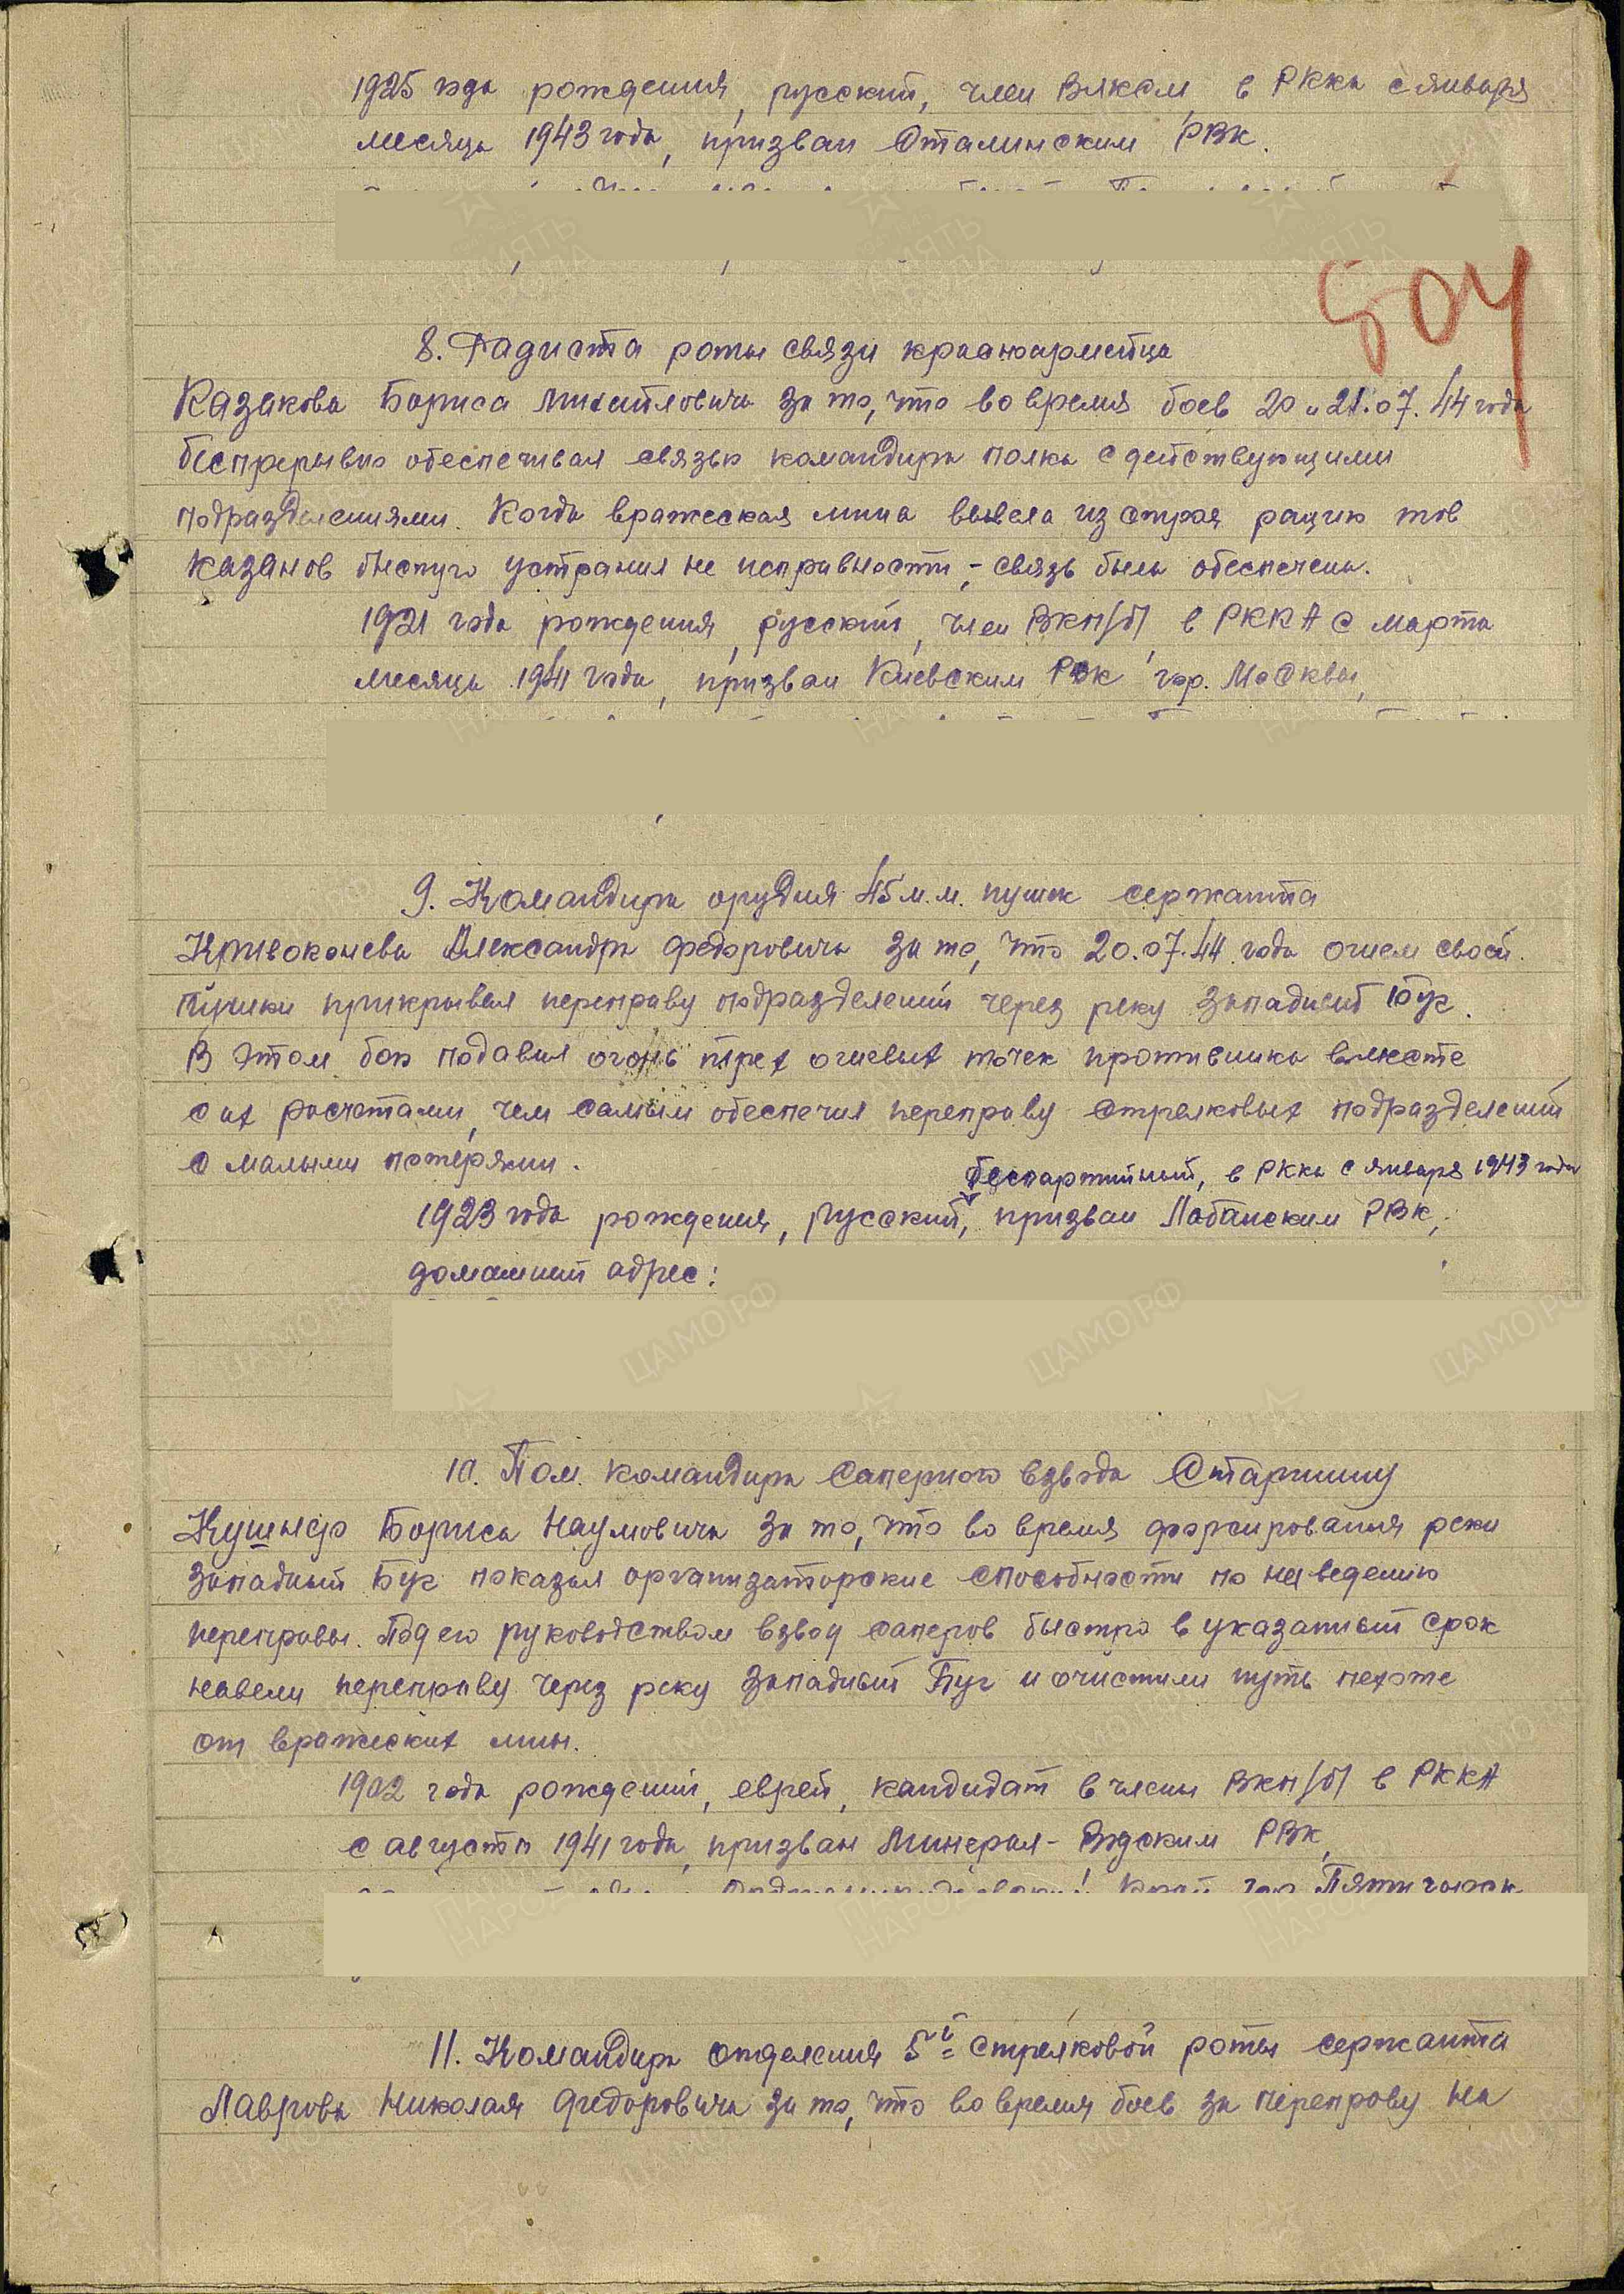 1925 года рождения, русский, член ВЛКСМ, в РККА с января
месяца 1943 года, призван Сталинским РВК.
504
8. Радиста роты связи красноармейца
Казакова Бориса Михайловича за то, что во время боев 20 и 21.07.44 года
беспрерывно обеспечивал связью командира полка с действующими
подразделениями. Когда вражеская мина вывела из строя рацию тов
Казаков быстро устранил не исправности, - связь была обеспечена.
1921 года рождения, русский, член ВКП/б/, в РККА с марта
месяца 1941 года, призван Киевским РВК гор. Москвы,
9. Командира орудия 45 м.м. пушек сержанта
Кривоконева Александра Федоровича за то, что 20.07.44 года огнем своей
пушки прикрывал переправу подразделений через реку Западный Буг.
В этом бою подавил огонь трех огневых точек противника вместе
с их расчетами, чем самым обеспечил переправу стрелковых подразделений
с малыми потерями.
беспартийный, в РККА с января 1943 года
1923 года рождения, русский, призван Лабанским РВК,
домашний адрес:
10. Пом. командира саперного взвода старшину
Кушнер Бориса Наумовича за то, что во время форсирования реки
Западный Буг показал организаторские способности по наведению
переправы. Под его руководством взвод саперов быстро в указанный срок
навели переправу через реку Западный Буг и очистили путь пехоте
от вражеских мин.
1902 года рождений, еврей, кандидат в члены ВКП/б/ в РККА
с августа 1941 года, призван Минерал-Водским РВК,
край гор Пятигорск
11. Командира отделения 5й стрелковой роты сержанта
Лаврова Николая Федоровича за то, что во время боев за переправу на
ПАМЯТЬ НАРОДА
ЦАМО.РФ